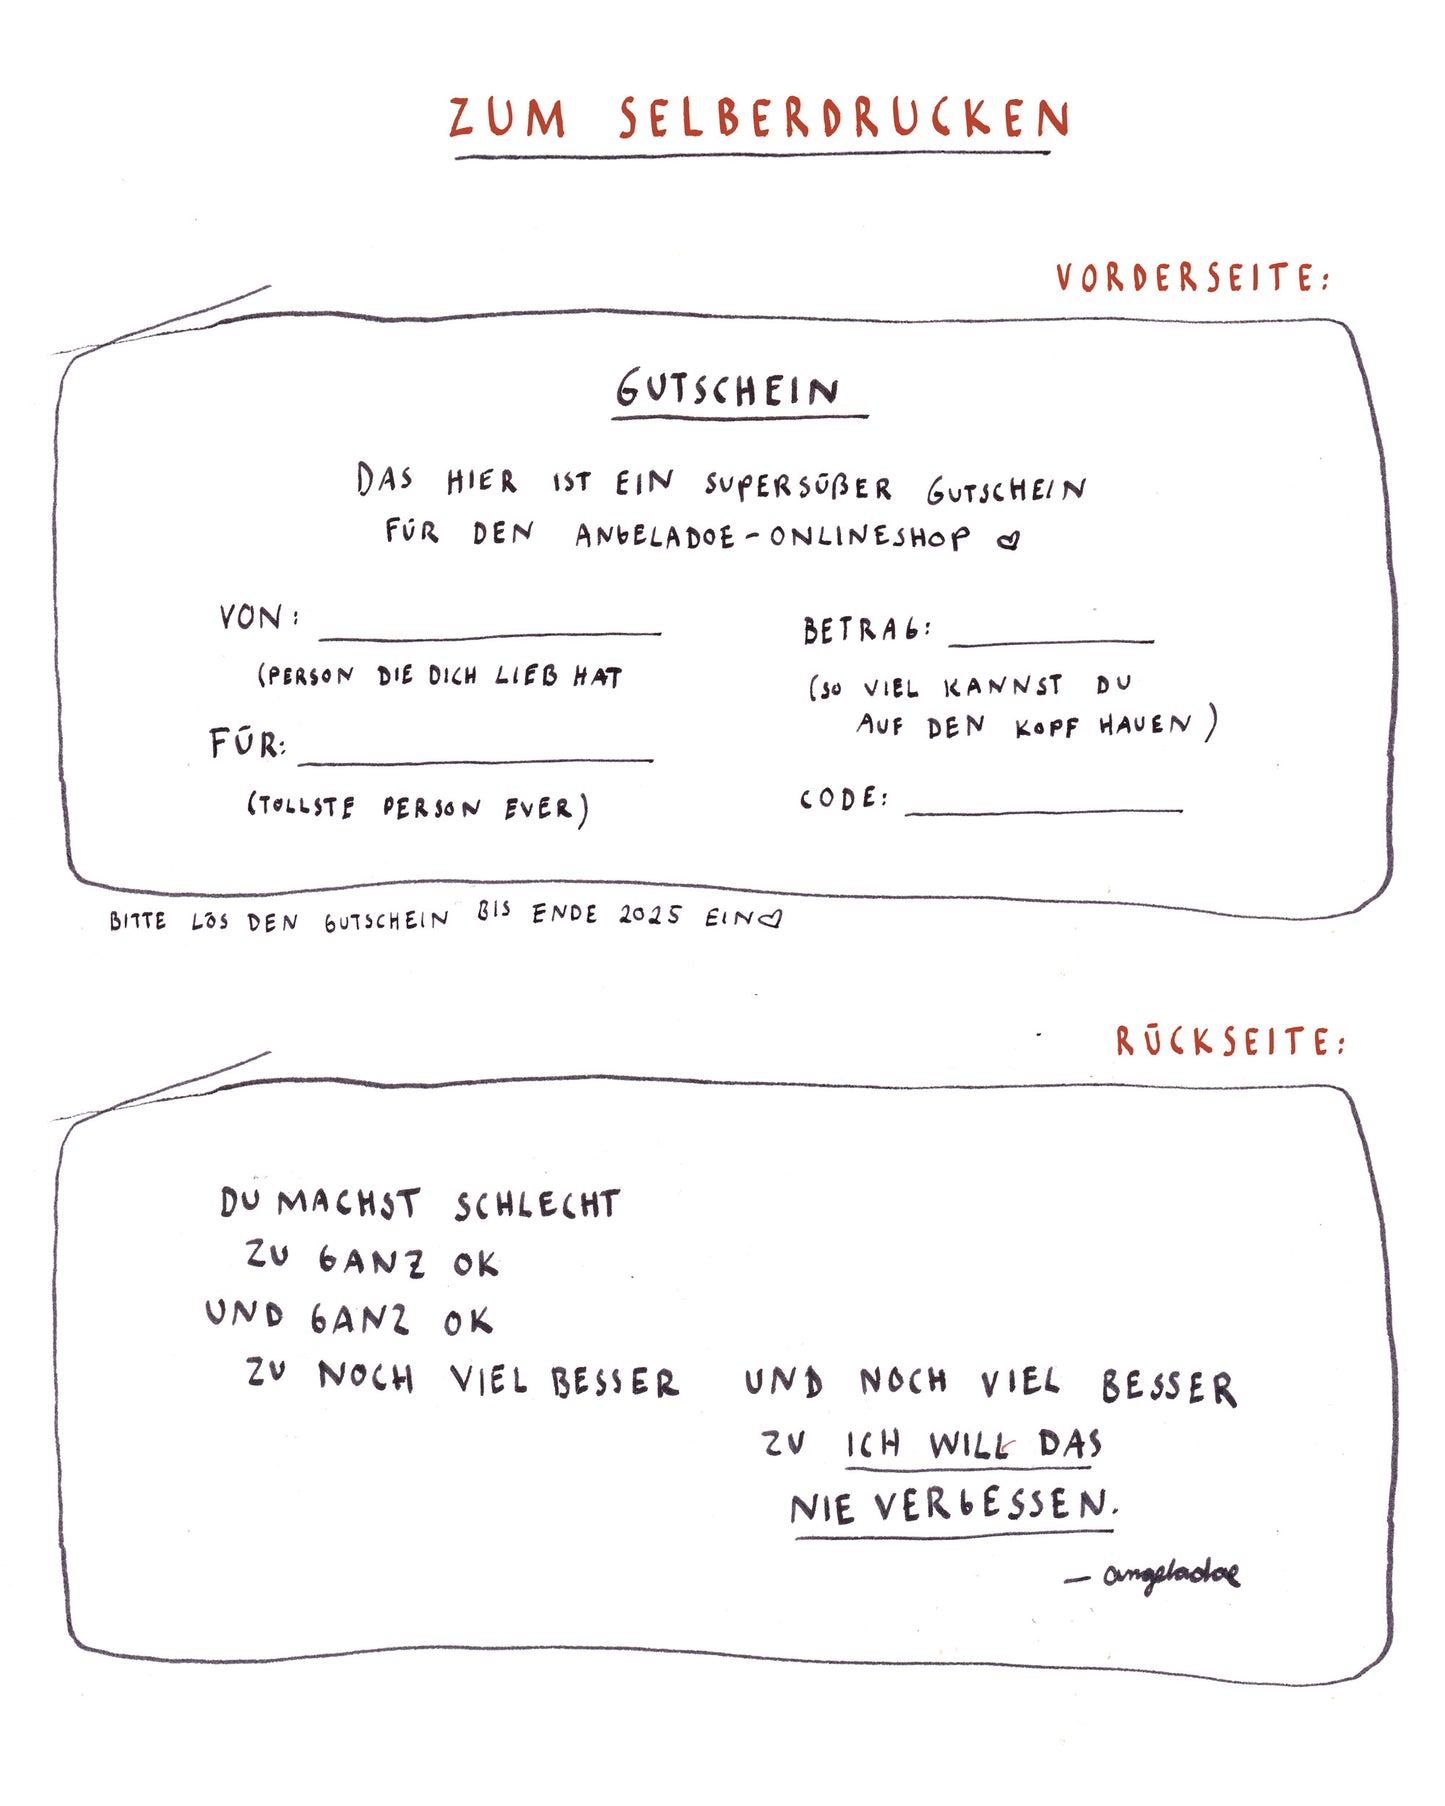 ZUM SELBERDRUCKEN
VORDERSEITE:
GUTSCHEIN
DAS HIER IST EIN SUPERSÜßER GUTSCHEIN
FÜR DEN ANGELADOE-ONLINESHOP ♡
VON: ____________
(PERSON DIE DICH LIEB HAT
FÜR: ____________
(TOLLSTE PERSON EVER)
BETRAG: ________
(SO VIEL KANNST DU
AUF DEN KOPF HAUEN)
CODE: __________
BITTE LÖS DEN GUTSCHEIN BIS ENDE 2025 EIN♡
RÜCKSEITE:
DU MACHST SCHLECHT
ZU GANZ OK
UND GANZ OK
ZU NOCH VIEL BESSER
UND NOCH VIEL BESSER
ZU ICH WILL DAS
NIE VERGESSEN.
— angeladoe